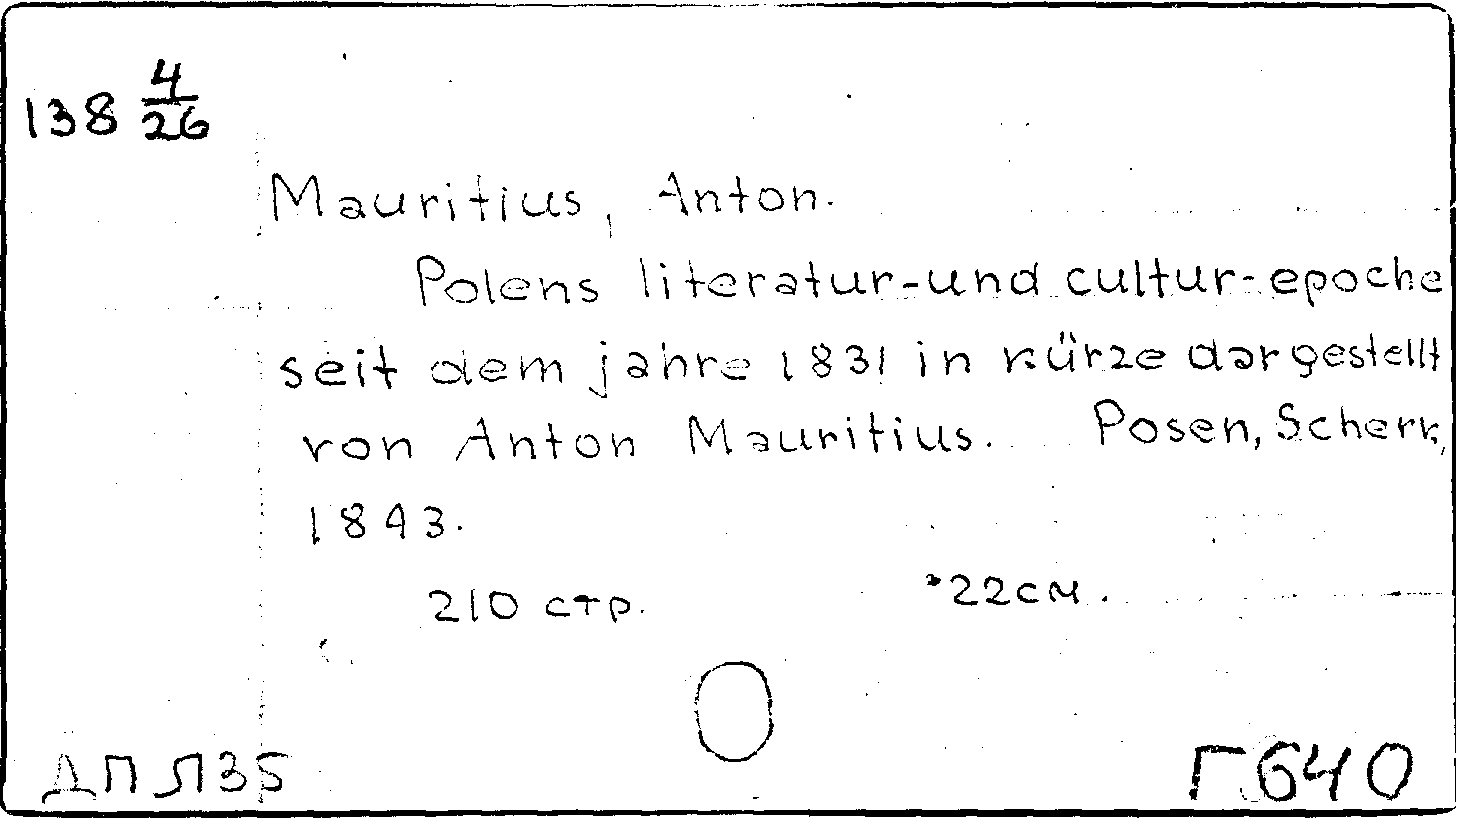 138 4/26
Mauritius, Anton.
Polens literatur-und cultur-epoche
seit dem jahre 1831 in kürze dargestellt
von Anton Mauritius. Posen, Scherk,
1843.
210 стр. 22см.
ДП Л35 Г640